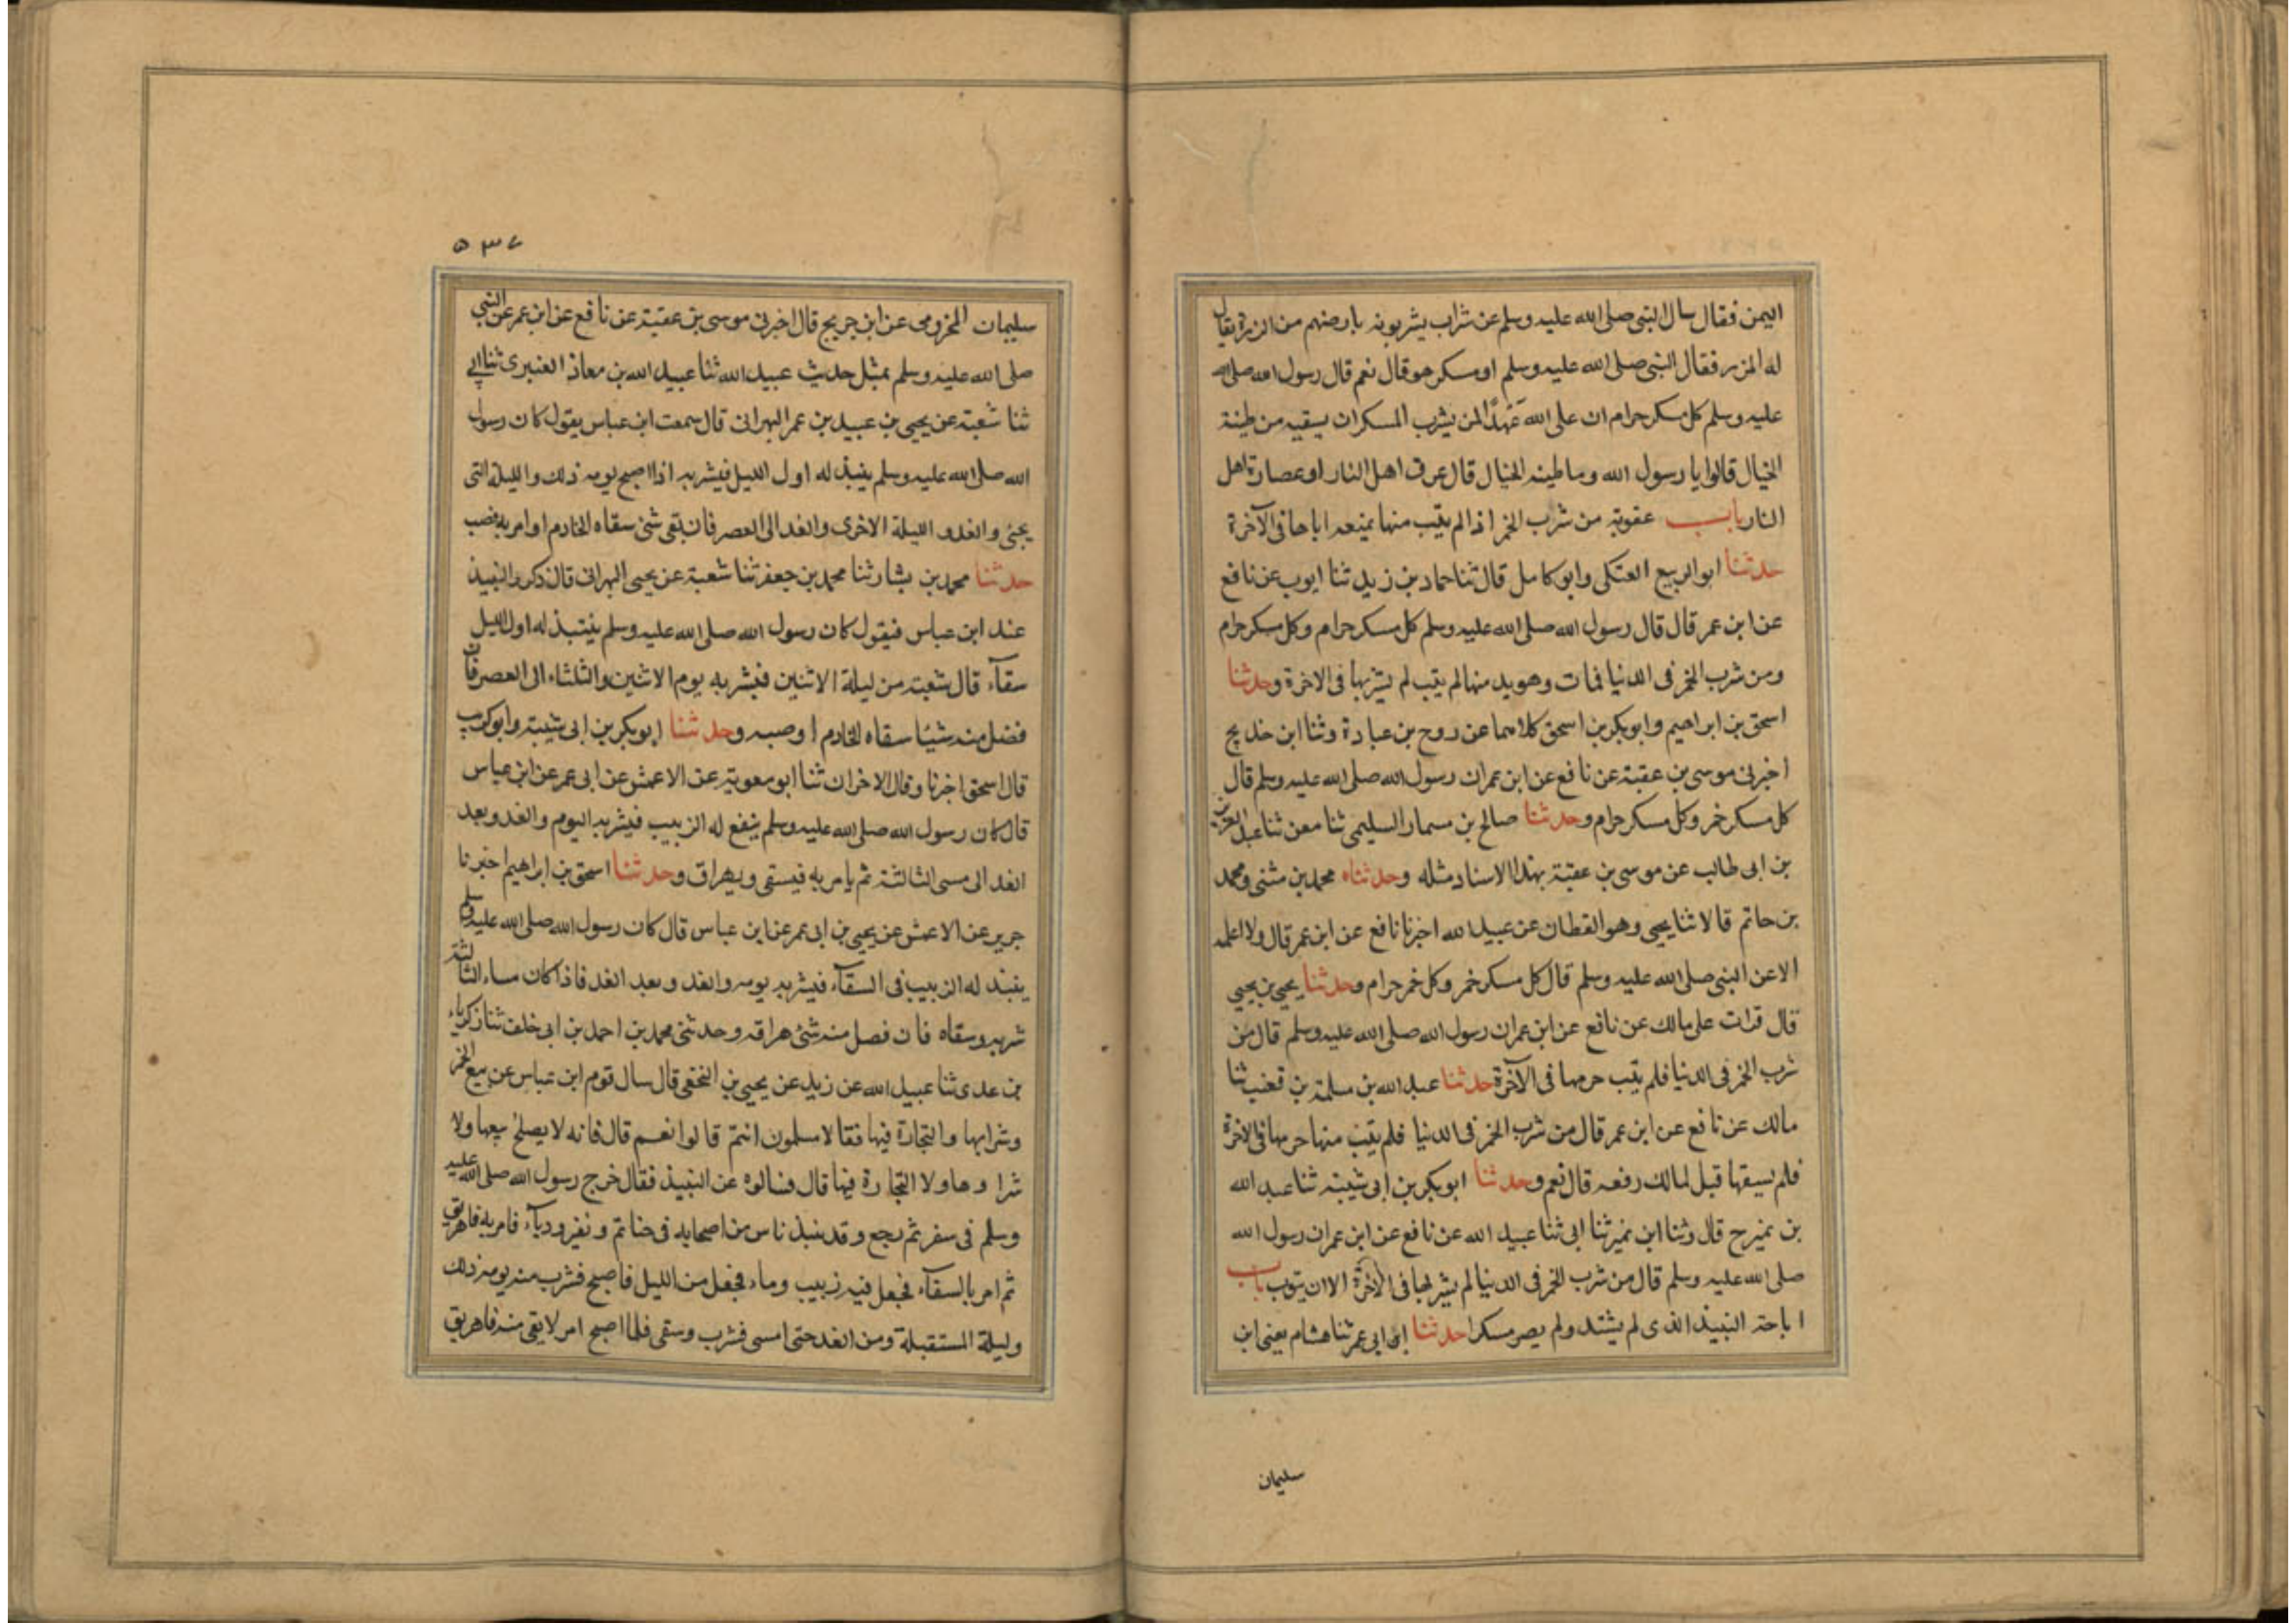 اليمن فقال سال النبى صلى الله عليه وسلم عن شراب يشربونه بارضهم من الزرة يقال
له المزر فقال النبى صلى الله عليه وسلم او مسكر هو قال نعم قال رسول الله صلى الله
عليه وسلم كل مسكر حرام ان على الله عَهدًا لمن يشرب المسكر ان يسقيه من طينة
الخبال قالوا يا رسول الله وما طينه الخبال قال عرق اهل النار او عصارة اهل
النار باب عقوبة من شرب الخمر اذا لم يتب منها بمنعه اياها فى الآخرة
حدثنا ابو الربيع العتكى وابو كامل قال ثنا حماد بن زيد ثنا ايوب عن نافع
عن ابن عمر قال قال رسول الله صلى الله عليه وسلم كل مسكر حرام وكل مسكر حرام
ومن شرب الخمر فى الدنيا فمات وهو يدمنها لم يتب لم يشربها فى الاخرة وحدثنا
اسحق بن ابراهيم وابو بكر بن اسحق كلاهما عن روح بن عبادة وثنا ابن خديج
اخبرنى موسى بن عقبة عن نافع عن ابن عمر ان رسول الله صلى الله عليه وسلم قال
كل مسكر خمر وكل مسكر حرام وحدثنا صالح بن مسمار السليمى ثنا معن ثنا عبد العزيز
بن ابى طالب عن موسى بن عقبة بهذا الاسناد مثله وحدثناه محمد بن مثنى ومحمد
بن حاتم قالا ثنا يحيى وهو القطان عن عبيد الله اخبرنا نافع عن ابن عمر قال ولا اعلمه
الا عن النبى صلى الله عليه وسلم قال كل مسكر خمر وكل خمر حرام وحدثنا يحيى بن يحيى
قال قرات على مالك عن نافع عن ابن عمر ان رسول الله صلى الله عليه وسلم قال من
شرب الخمر فى الدنيا فلم يتب حرمها فى الآخرة حدثنا عبد الله بن مسلمة بن قعنب ثنا
مالك عن نافع عن ابن عمر قال من شرب الخمر فى الدنيا فلم يتب منها حرمها فى الاخرة
فلم يسقها قيل لمالك رفعه قال نعم وحدثنا ابو بكر بن ابى شيبة ثنا عبد الله
بن نمير ح قال وثنا ابن نمير ثنا ابى ثنا عبيد الله عن نافع عن ابن عمر ان رسول الله
صلى الله عليه وسلم قال من شرب الخمر فى الدنيا لم يشربها فى الآخرة الا ان يتوب باب
اباحة النبيذ الذى لم يشتد ولم يصر مسكرا حدثنا ابن ابى عمر ثنا هشام يعنى ابن
سليمان
٥٣٤
سليمان المخزومى عن ابن جريج قال اخبرنى موسى بن عقبة عن نافع عن ابن عمر عن النبى
صلى الله عليه وسلم بمثل حديث عبيد الله ثنا عبيد الله بن معاذ العنبرى ثنا ابى
ثنا شعبة عن يحيى بن عبيد بن عمر البهرانى قال سمعت ابن عباس يقول كان رسول
الله صلى الله عليه وسلم ينبذ له اول الليل فيشربه اذا اصبح يومه ذلك والليلة التى
يجئ والغد والليلة الاخرى والغد الى العصر فان بقى شئ سقاه الخادم او امر به فصب
حدثنا محمد بن بشار ثنا محمد بن جعفر ثنا شعبة عن يحيى البهرانى قال ذكروا النبيذ
عند ابن عباس فيقول كان رسول الله صلى الله عليه وسلم ينتبذ له اول الليل
سقآء قال شعبة من ليلة الاثنين فيشربه يوم الاثنين والثلثاء الى العصر فان
فضل منه شيئا سقاه الخادم او صبه وحدثنا ابو بكر بن ابى شيبة وابو كريب
قال اسحق اخبرنا وقال الاخران ثنا ابو معوية عن الاعمش عن ابى عمر عن ابن عباس
قال كان رسول الله صلى الله عليه وسلم ينقع له الزبيب فيشربه اليوم والغد وبعد
الغد الى مسى الثالثة ثم يامر به فيسقى ويهراق وحدثنا اسحق بن ابراهيم اخبرنا
جرير عن الاعمش عن يحيى بن ابى عمر عن ابن عباس قال كان رسول الله صلى الله عليه وسلم
ينبذ له الزبيب فى السقآء فيشربه يومه والغد وبعد الغد فاذا كان مساء الثالثة
شربه وسقاه فان فضل منه شئ هراقه وحدثنى محمد بن احمد بن ابى خلف ثنا زكرياء
بن عدى ثنا عبيد الله عن زيد عن يحيى بن النخعى قال سال قوم ابن عباس عن بيع الخمر
وشرايها والتجارة فيها فقالا مسلمون انتم قالوا نعم قال فانه لا يصلح بيعها ولا
شراوها ولا التجارة فيها قال فسالوه عن النبيذ فقال خرج رسول الله صلى الله عليه
وسلم فى سفر ثم رجع وقد نبذ ناس من اصحابه فى حناتم ونقير ودبآء فامر به فاهريق
ثم امر بالسقآء فجعل فيه زبيب وماء فجعل من الليل فاصبح فشرب منه يومه ذلك
وليلة المستقبلة ومن الغد حتى امسى فشرب وسقى فلما اصبح امر لا يقى منه فاهريق